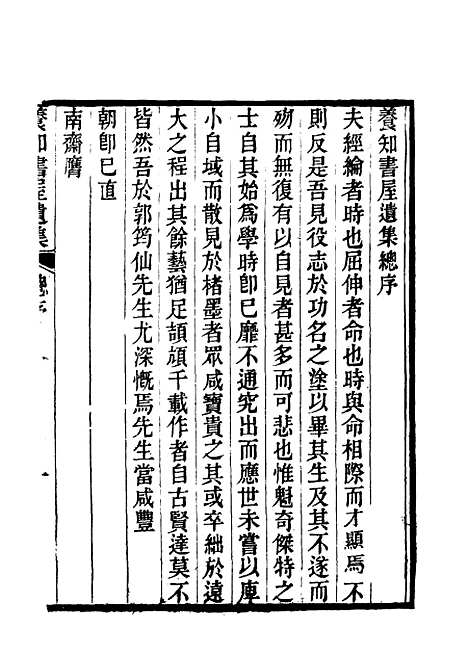 養知書屋遺集總序
夫經綸者時也屈伸者命也時與命相際而才顯焉不
則反是吾見役志於功名之塗以畢其生及其不遂而
殁而無復有以自見者甚多而可悲也惟魁奇傑特之
士自其始爲學時卽已靡不通究出而應世未嘗以庳
小自域而散見於楮墨者眾咸寶貴之其或卒絀於遠
大之程出其餘藝猶足頡頏千載作者自古賢達莫不
皆然吾於郭筠仙先生尤深慨焉先生當咸豐
朝卽已直
南齋膺
養知書屋遺集
總序
一